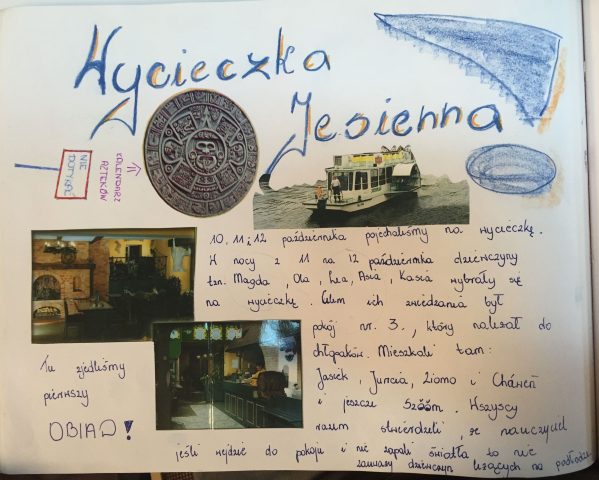 Wycieczka
Jesienna
NIE
DOTYKAĆ
KALENDARZ
AZTEKÓW
10, 11 i 12 października pojechaliśmy na wycieczkę.
W nocy z 11 na 12 października dziewczyny
tzn. Magda, Ola, Lea, Asia, Kasia wybrały się
na wycieczkę. Celem ich zwiedzania był
pokój nr. 3., który należał do
chłopaków. Mieszkali tam:
Jasiek, Juricia, Ziomo i Cháněń
i jeszcze Szööm. Wszyscy
razem stwierdzili, że nauczyciel
jeśli wejdzie do pokoju i nie zapali światła to nie
zauważy dziewczyn leżących na podłodze
Tu zjedliśmy
pierwszy
OBIAD!